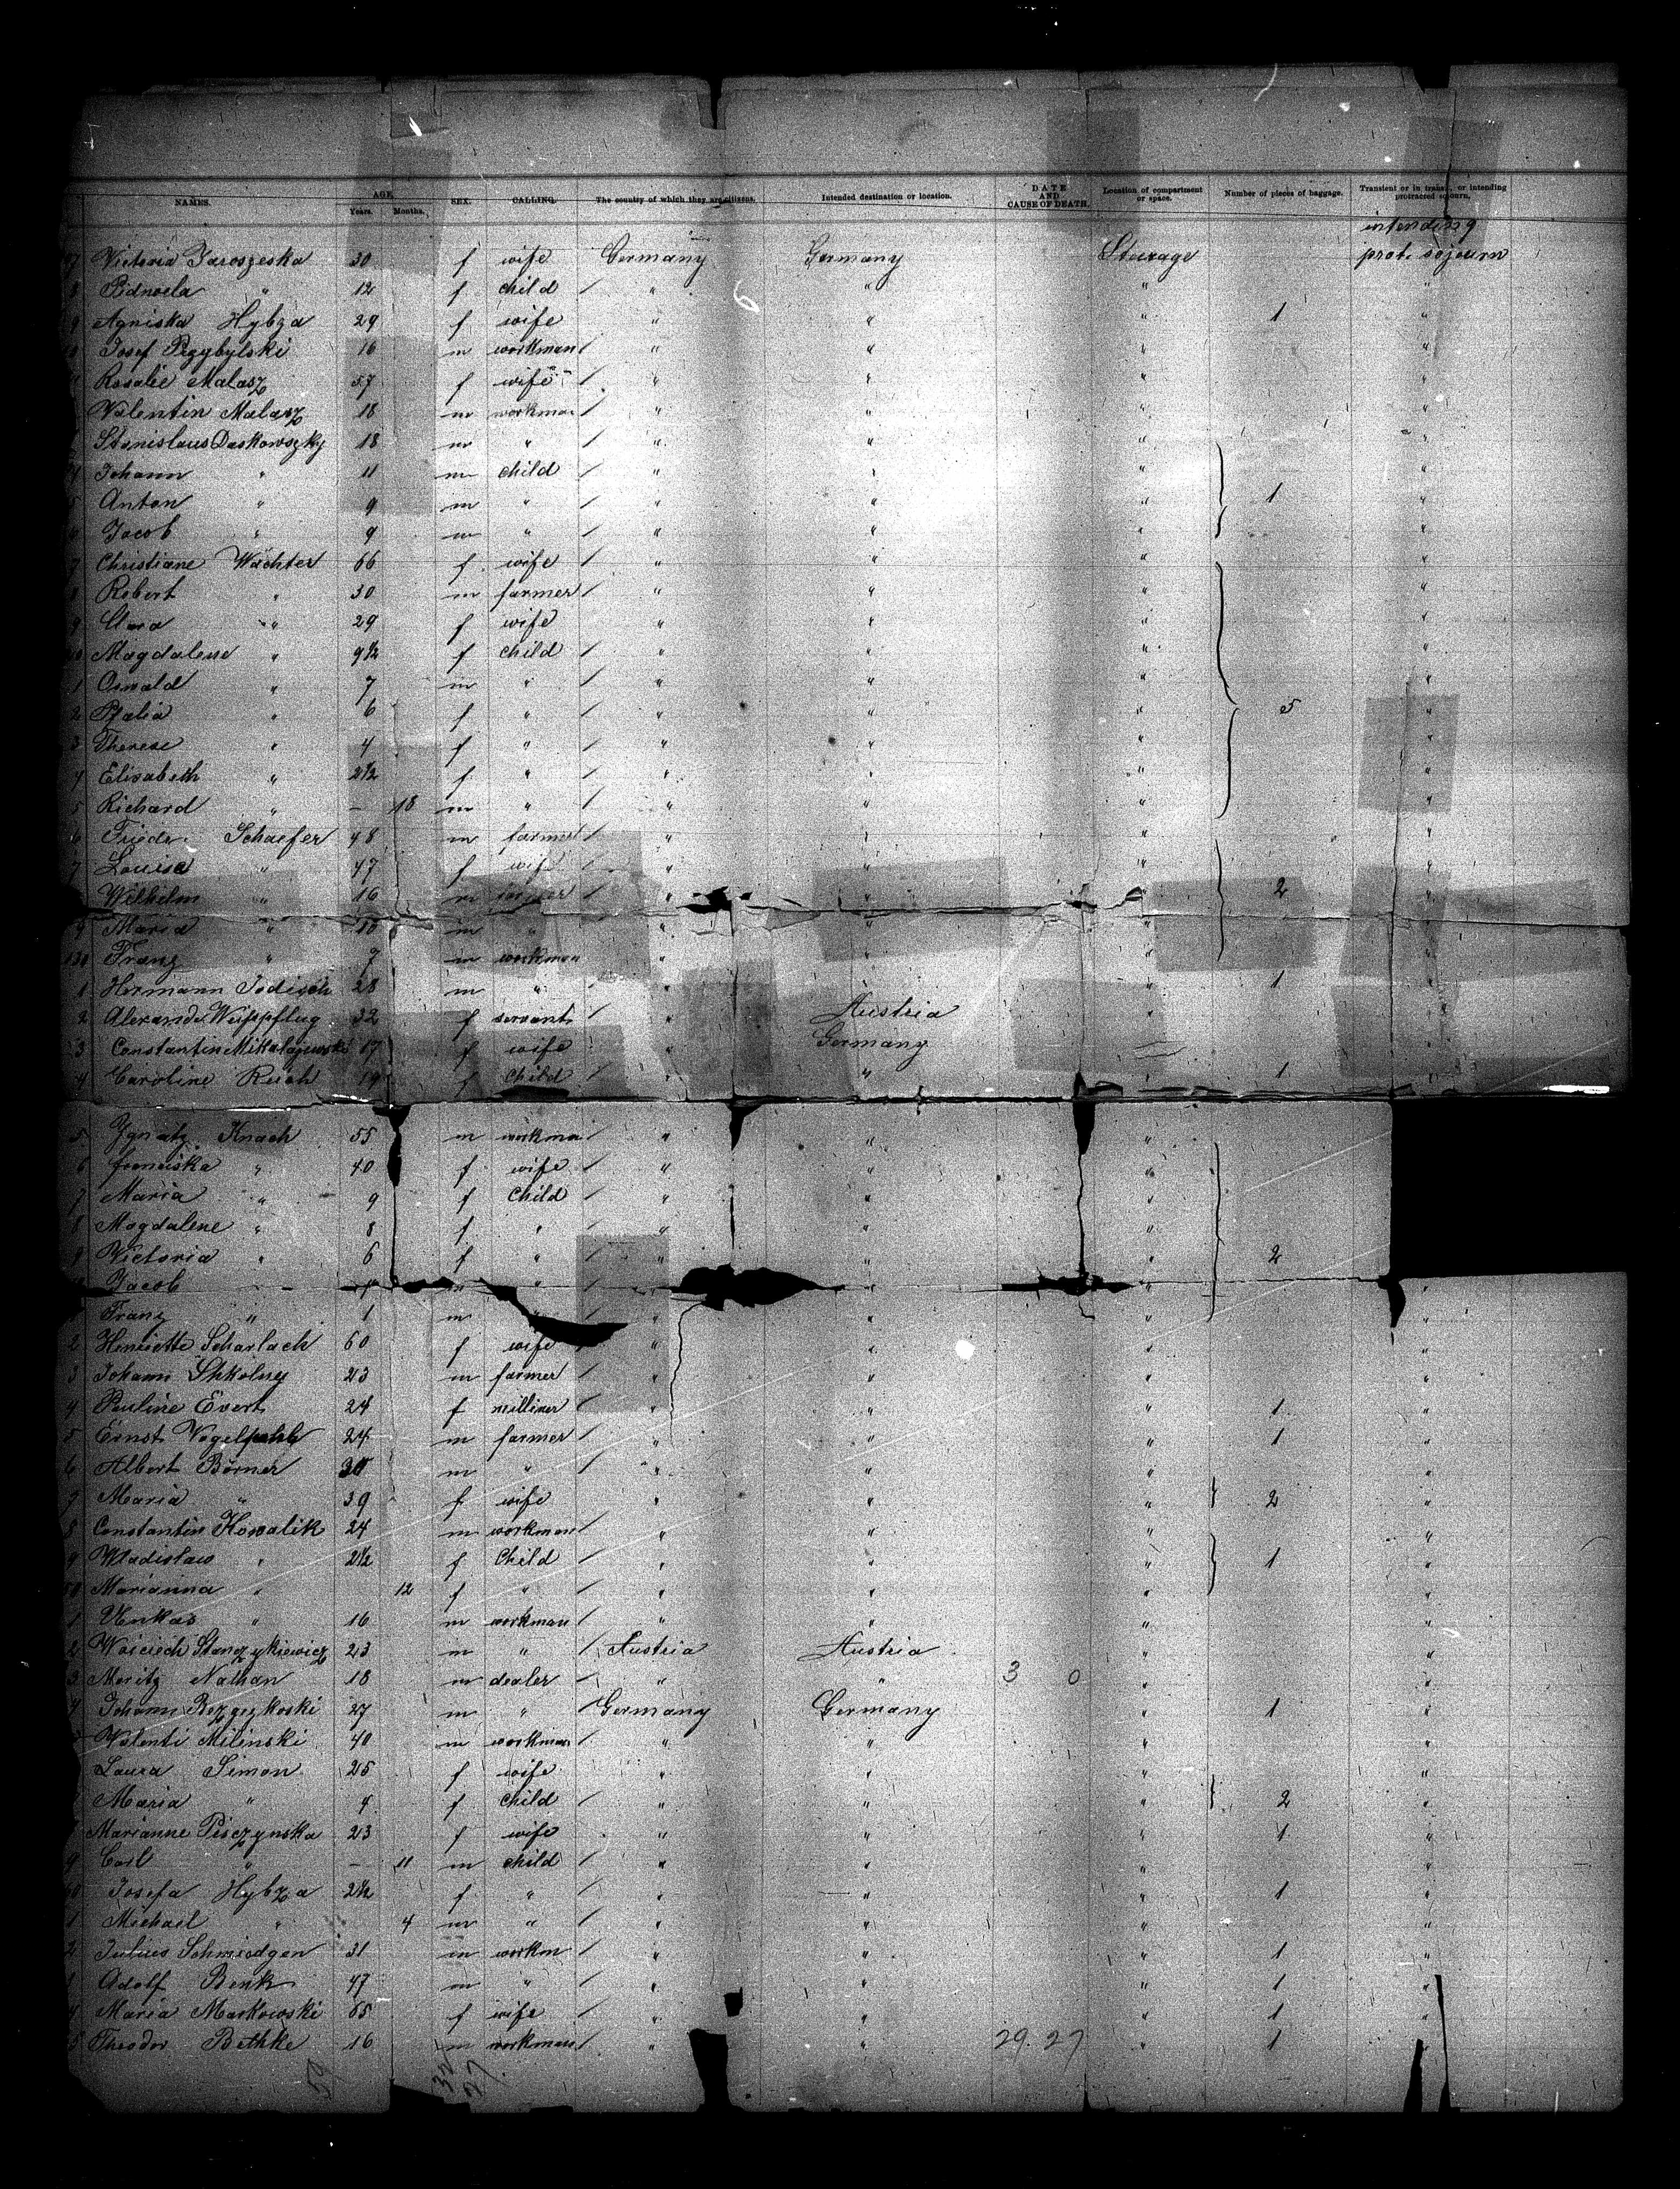 NAMES. AGE. Years. Months. SEX. CALLING. The country of which they are citizens. Intended destination or location. DATE AND CAUSE OF DEATH. Location of compartment or space. Number of pieces of baggage. Transient or in transit, or intending protracted sojourn.
intending
7 Victoria Jaroszeska 30 f wife Germany Germany Steerage prot. sojourn
8 12 f child " " " "
9 Agniska Hybza 29 f wife " " " 1 "
Josef 16 m workman " " " "
Rosalie Malasz 57 f wife " " " "
Valentin Malasz 18 m workman " " " "
Stanislaus Daskowszky 18 m " " " " "
4 Johann " 11 m child " " " "
5 Anton " 9 m " " " " 1 "
6 Jacob " 9 m " " " " "
7 Christiane Wächter 66 f wife " " " "
8 Robert " 30 m farmer " " " "
9 Clara " 29 f wife " " " "
Magdalene " 9½ f child " " " "
1 Oswald " 7 m " " " " "
2 " 6 f " " " " 5 "
3 Therese " 4 f " " " " "
4 Elisabeth " 2½ f " " " " "
5 Richard " – 18 m " " " " "
6 Friedr. Schaefer 48 m farmer " " " "
7 Louise " 47 f wife " " " "
Wilhelm " 16 m farmer " " " 2 "
9 Maria " 10 m " " " " "
130 Franz " 7 m workman " " " "
1 Hermann Jodisch 28 m " " " " 1 "
2 Weisspflug 32 f servant " Austria " "
3 Constantin Mikolajewski 17 f wife " Germany " "
4 Caroline Reich 19 f child " " " 1 "
5 Ignatz Knach 55 m workman " " "
6 Franciska " 40 f wife " " "
7 Maria " 9 f child " " "
8 Magdalene " 8 f " " " "
9 Victoria " 6 f " " " " 2
Jacob " m " " "
1 Franz " 1 m " " " "
2 Henriette Scharlach 60 f wife " " " "
3 Johann Shkolny 23 m farmer " " " "
4 Pauline Evert 24 f milliner " " " 1 "
5 Ernst Vogelpohl 24 m farmer " " " 1 "
6 Albert Börner 30 m " " " " "
7 Maria " 39 f wife " " " 2 "
8 Constantin Kowalik 24 m workman " " " "
9 Wladislaw " 2½ f child " " " 1 "
50 Marianna " 12 f " " " " "
1 " 16 m workman " " " "
2 Woiciech Stanzykiewicz 23 m " Austria Austria " "
3 Moritz Nathan 18 m dealer " " 3 0 " "
4 Johann 27 m " Germany Germany " 1 "
Valenti Milinski 40 m workman " " " "
Laura Simon 25 f wife " " " "
Maria " 4 f child " " " 2 "
Marianne Pisczynska 23 f wife " " " 1 "
9 Carl " – 11 m child " " " "
60 Josefa Hybza 2½ f " " " " 1 "
1 Michael " 4 m " " " " "
2 Julius Schmiedgen 31 m workm " " " 1 "
Adolf Benk 47 m " " " " 1 "
4 Maria Markowski 65 f wife " " " 1 "
5 Theodor Bethke 16 m workman " " 29. 27 " 1 "
59 32 27